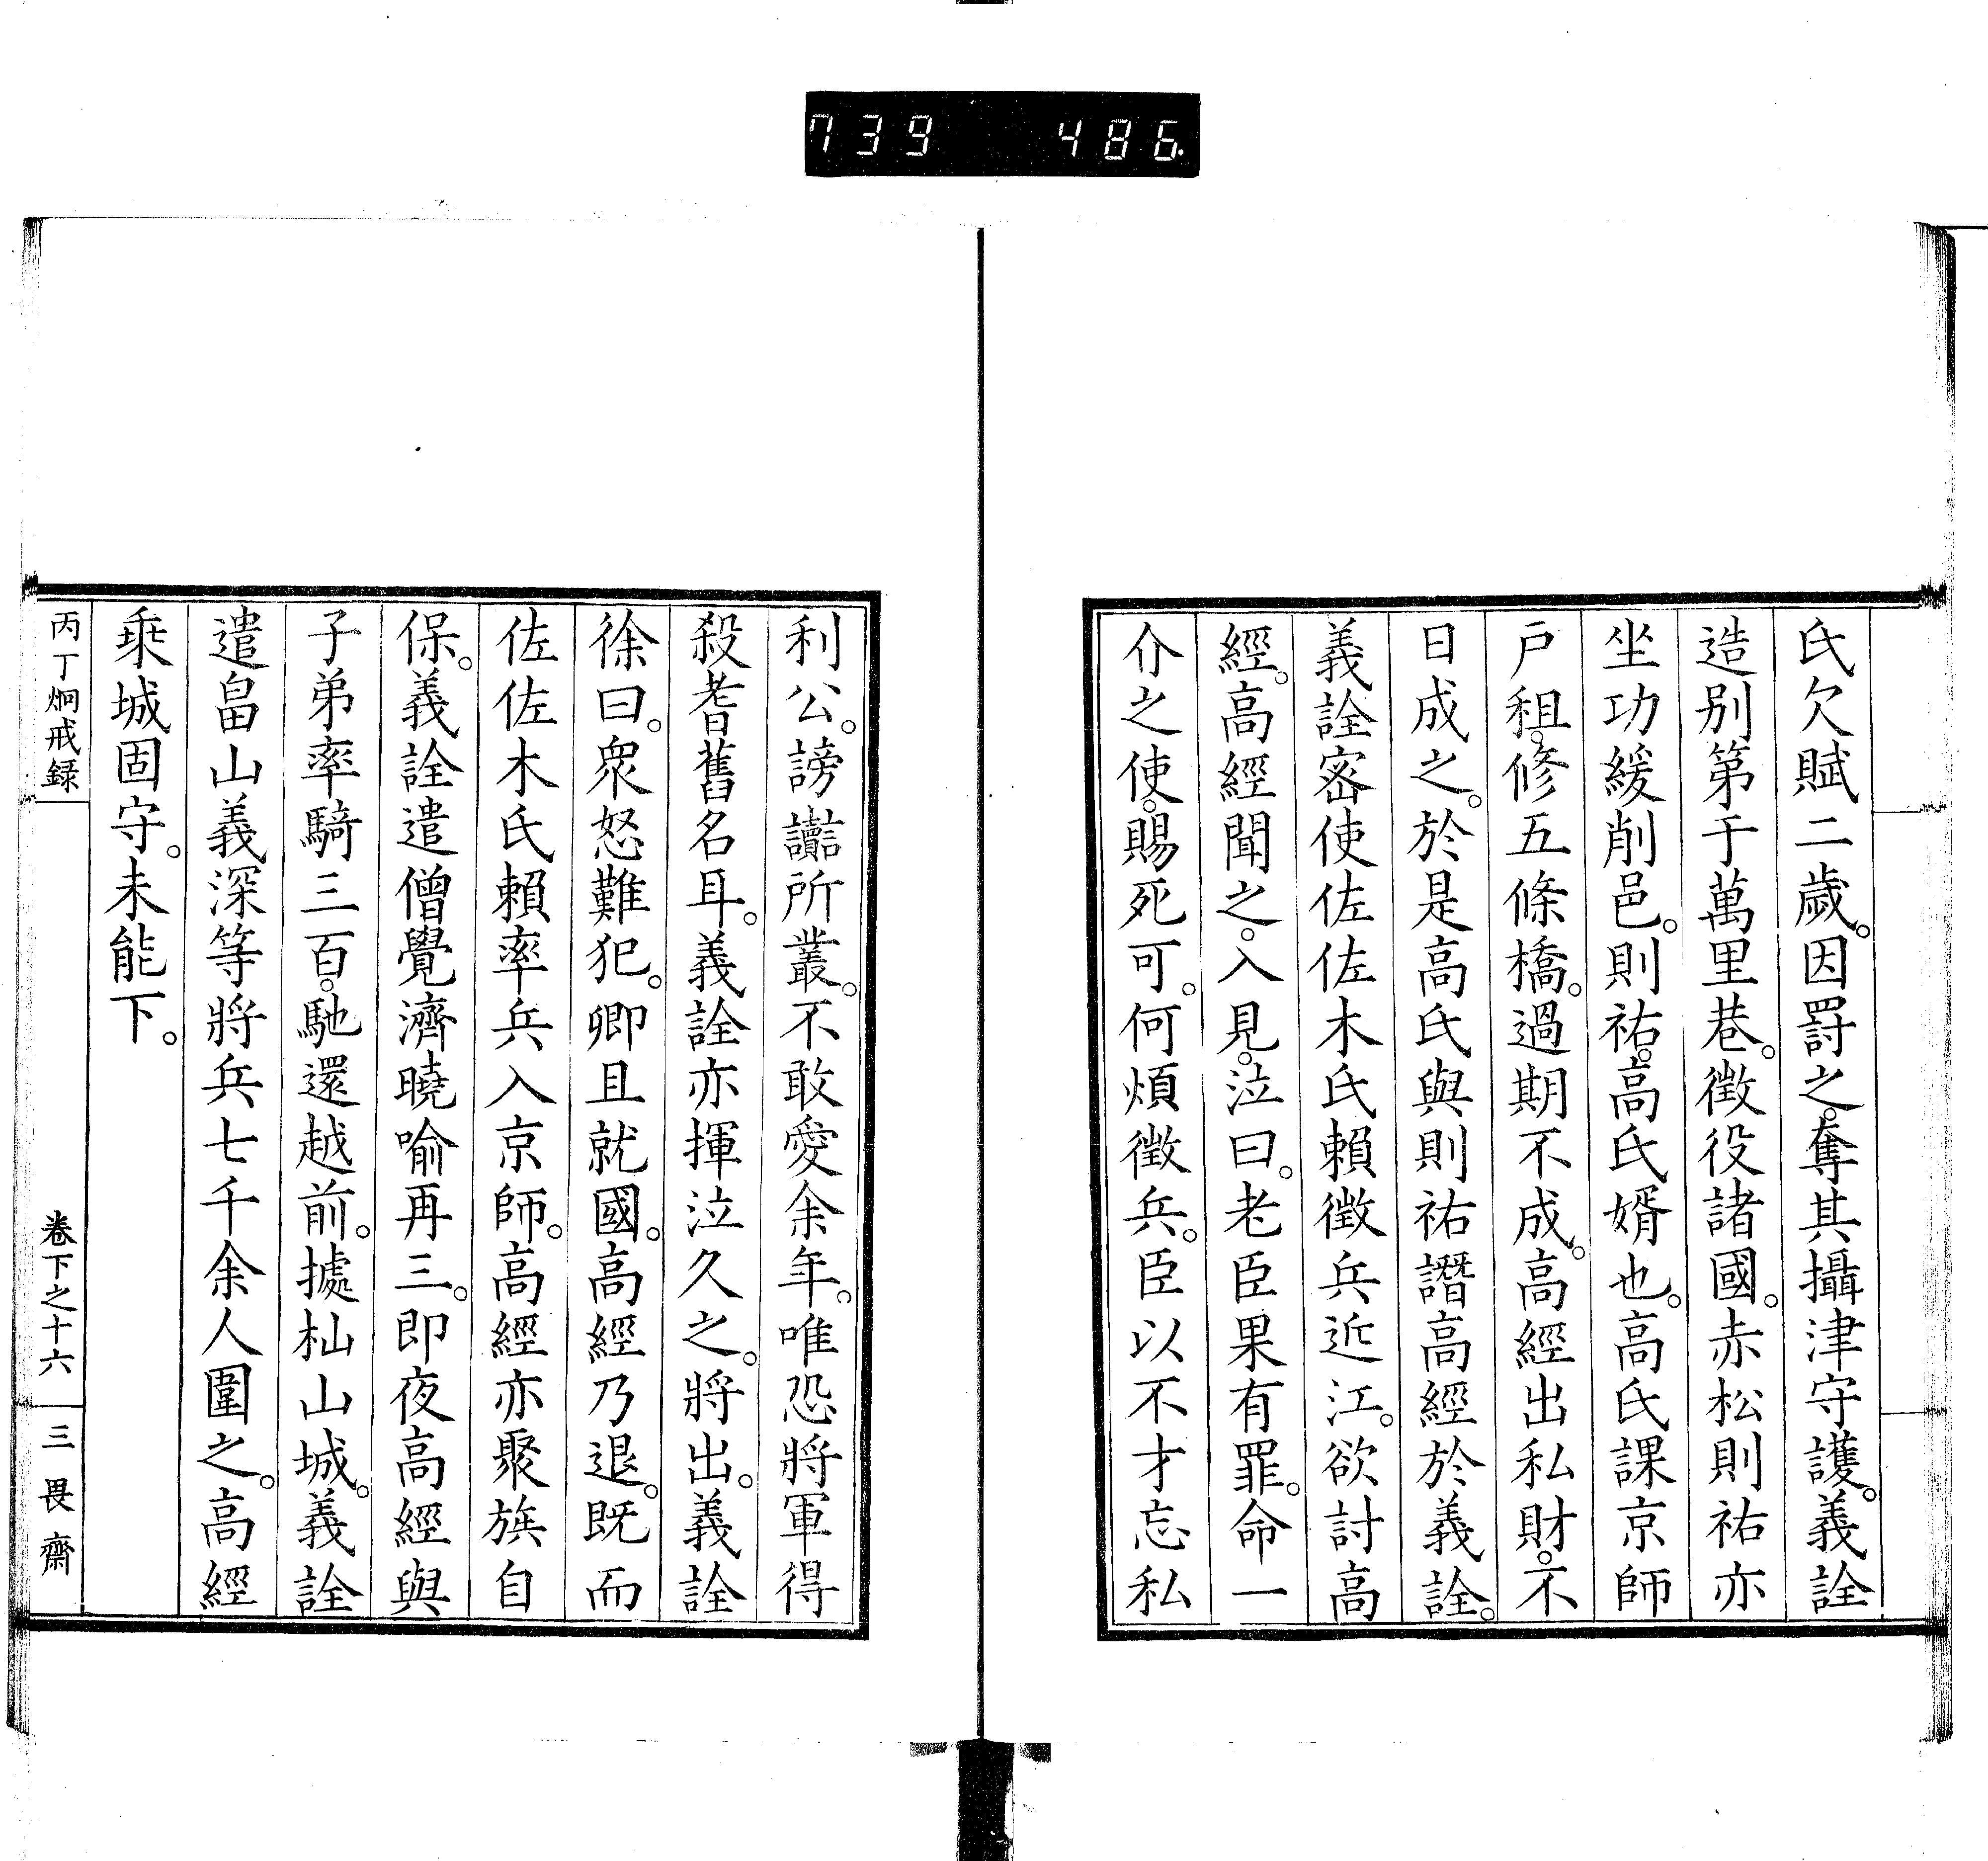 739 486
氏欠賦二歲。因罸之。奪其攝津守護。義詮
造别第于萬里巷。徵役諸國。赤松則祐亦
坐功緩削邑。則祐。高氏婿也。高氏課京師
戸租。修五條橋。過期不成。高經出私財。不
日成之。於是高氏與則祐譖高經於義詮。
義詮密使佐佐木氏賴徵兵近江。欲討高
經。高經聞之。入見。泣曰。老臣果有罪。命一
介之使。賜死可。何煩徵兵。臣以不才忘私
利公。謗讟所叢。不敢愛余年。唯恐將軍得
殺耆舊名耳。義詮亦揮泣久之。將出。義詮
徐曰。衆怒難犯。卿且就國。高經乃退。既而
佐佐木氏賴率兵入京師。高經亦聚族自
保。義詮遣僧覺濟曉喻再三。即夜高經與
子弟率騎三百。馳還越前。據杣山城。義詮
遣畠山義深等將兵七千余人圍之。高經
乘城固守。未能下。
丙丁炯戒録 卷下之十六 三畏齋